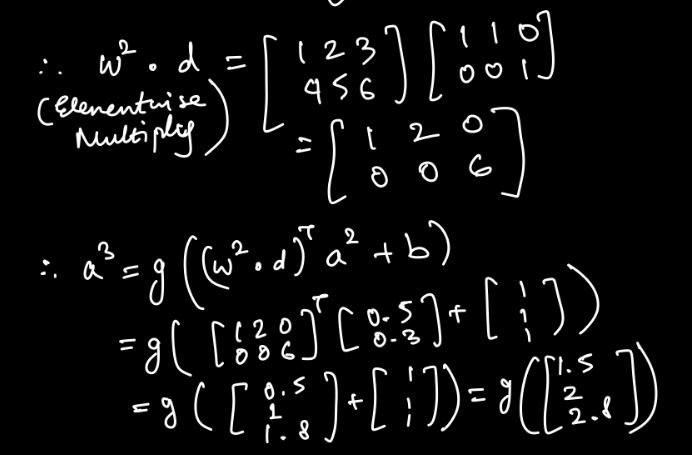 ∴ w² . d = [1 2 3; 4 5 6] [1 1 0; 0 0 1]
(Elementwise Multiply)
= [1 2 0; 0 0 6]
∴ a³ = g((w² . d)ᵀ a² + b)
= g([1 2 0; 0 0 6]ᵀ [0.5; 0.3] + [1; 1; 1])
= g([0.5; 1; 1.8] + [1; 1; 1]) = g([1.5; 2; 2.8])